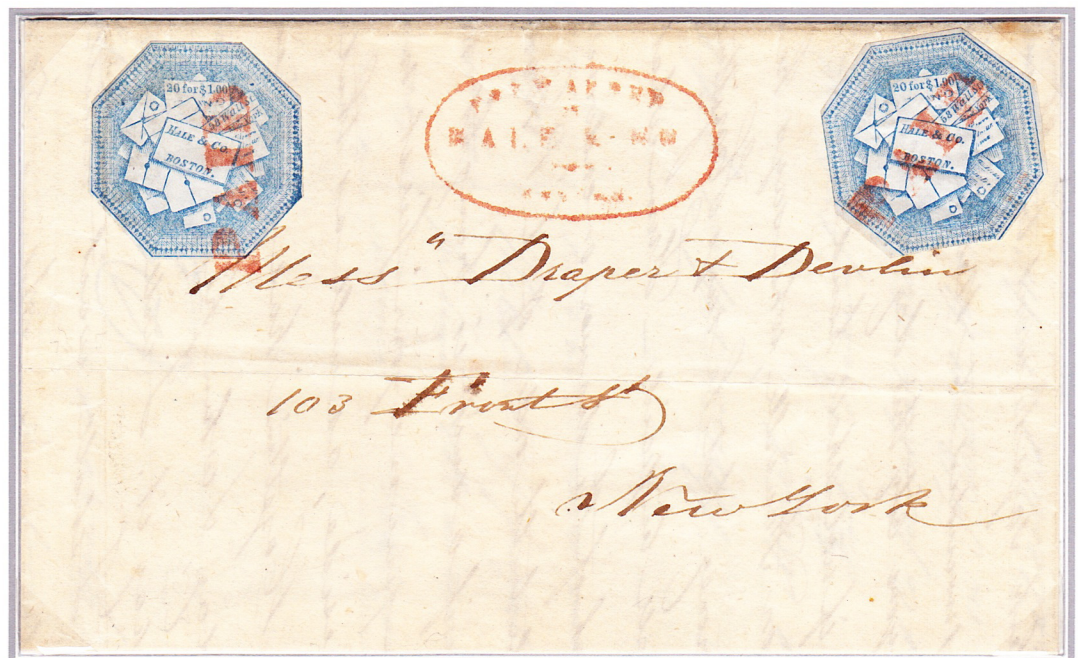 20 for $1.00
HALE & Co.
BOSTON.
PAID
FORWARDED
HALE & CO
20 for $1.00
HALE & Co.
BOSTON.
PAID
Mess" Draper & Devlin
103 Front St
New York